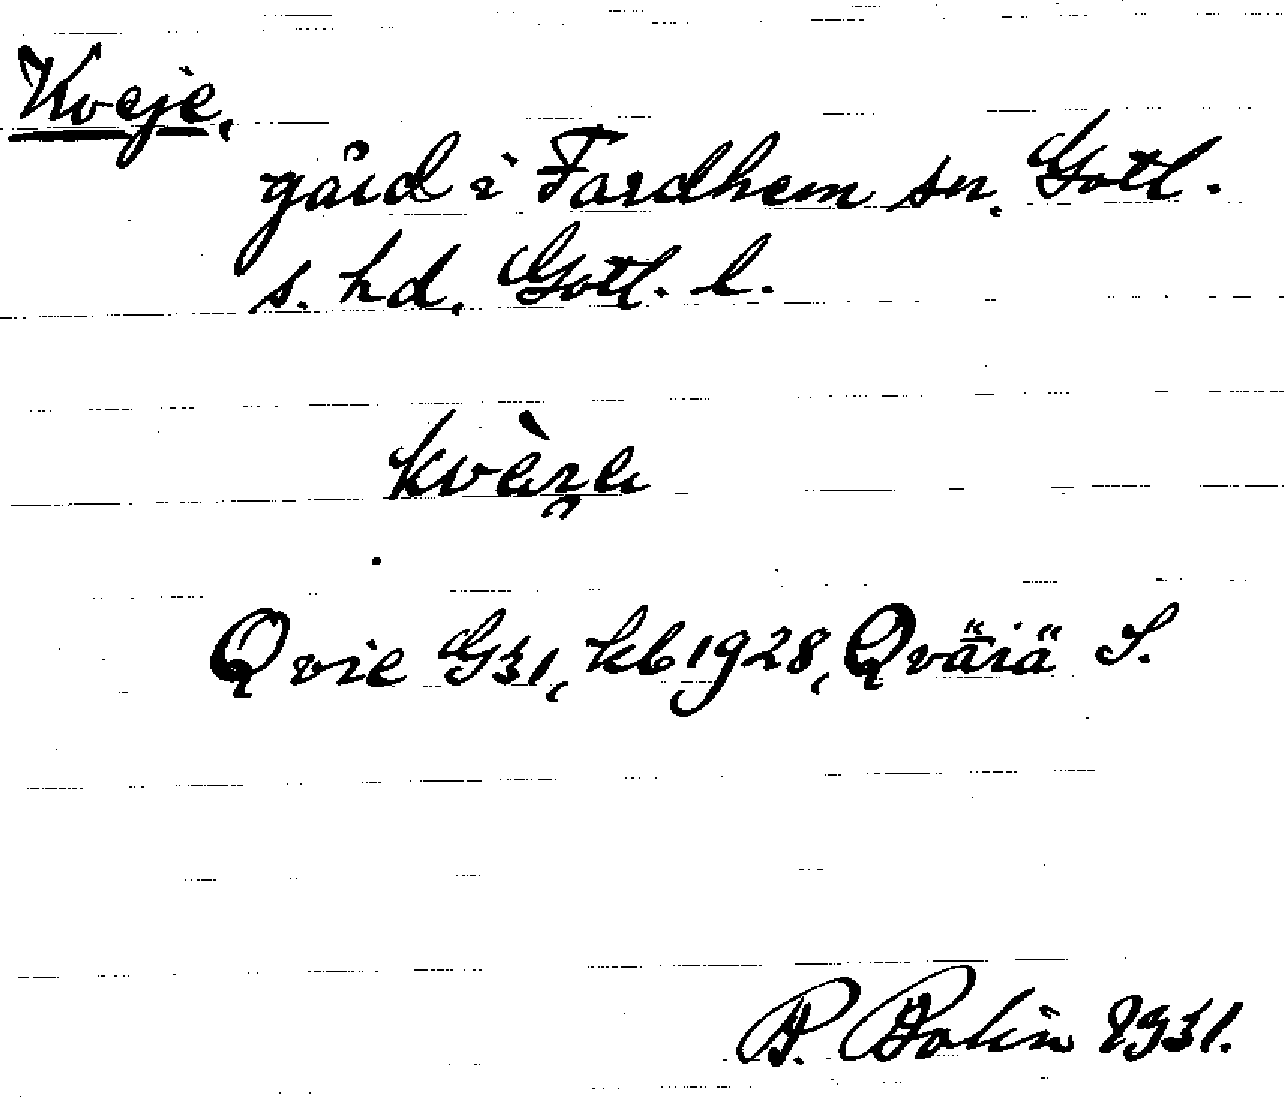 Kveje,
gård i Fardhem sn. Gotl.
s. hd. Gotl. l.
Qvie G31, kb 1928, Qväiä S.
P. Bolin 1931.